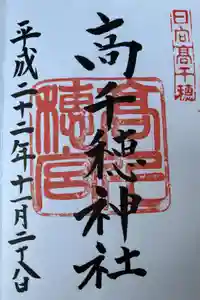 日向高千穂
高千穗神社
高千穗宮
平成二十二年十一月二十八日